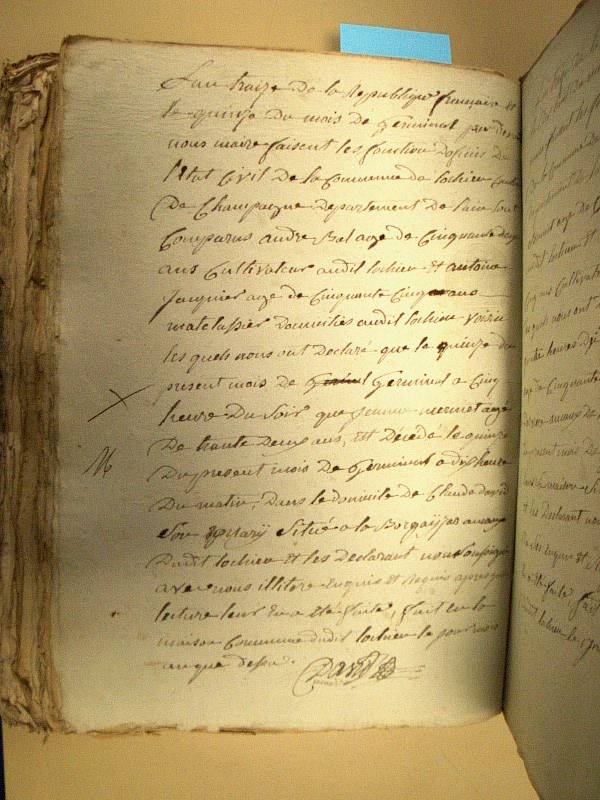 L'an traize De la Republique française et
le quinze Du mois De Germinal par devant
nous maire faisent les fonction Doficié De
l'Etat Civil De la Commune de lochieu Canton
De Champagne Departement De lain sont
Comparus andre Balage De Cinquante
ans Cultivateur audit lochieu et antoine
Jarquier age de Cinquante Cinq ans
matelassier Domicilies audit lochieu voisin
les quels nous ont Declaré que le quinze du
present mois De Germinal a Cinq
heure Du Soir que Jeanne mermet agé
De trante Deux ans, est Décédé le quinze
Du present mois De Germinal a dix heure
Du matin, Dans le domicile de Claude
Son Mary Situé a la
Dudit lochieu et les Declarant nous
avec nous illitere Enquis et Requis apres que
lecture leur En a été faite, fait en la
maison Commune dudit lochieu le jour mois
an que dessu.
David
M